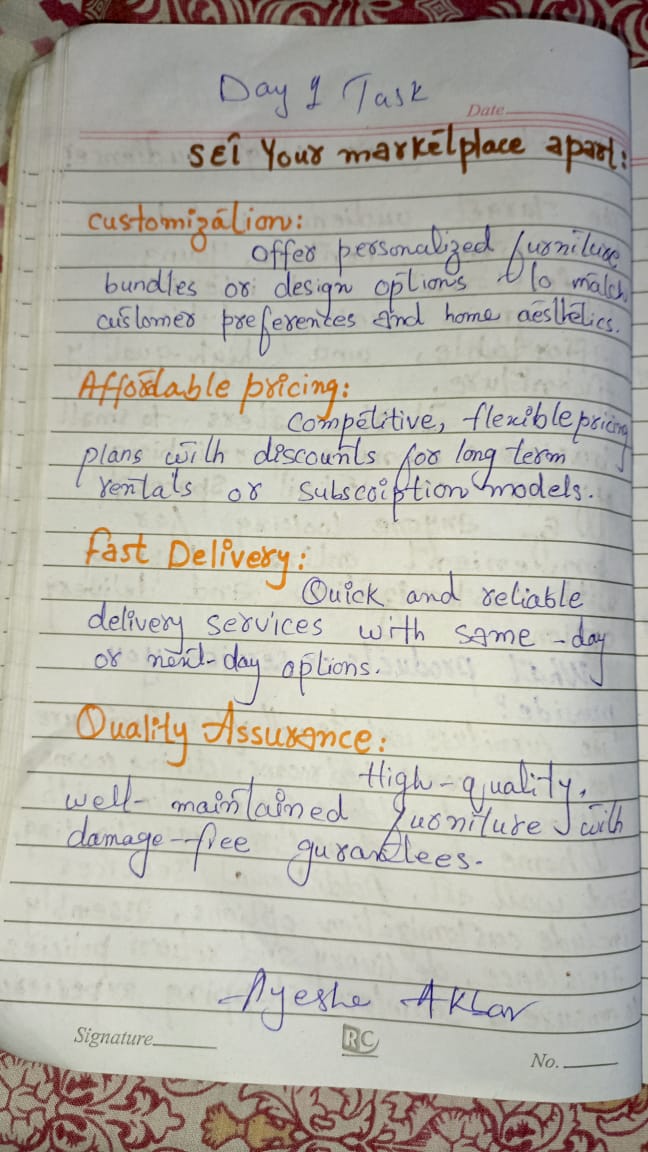 Day 1 Task
Date
Set Your marketplace apart:
Customization:
Offer personalized furniture
bundles or design options to match
customer preferentes and home aesthetics.
Affordable pricing:
Competitive, flexible pricing
plans with discounts for long term
rentals or subscription models.
Fast Delivery:
Quick and reliable
delivery services with same-day
or next-day options.
Quality Assurance:
High-quality,
well-maintained furniture with
damage-free gurantees.
Ayesha Akbar
Signature
RC
No.